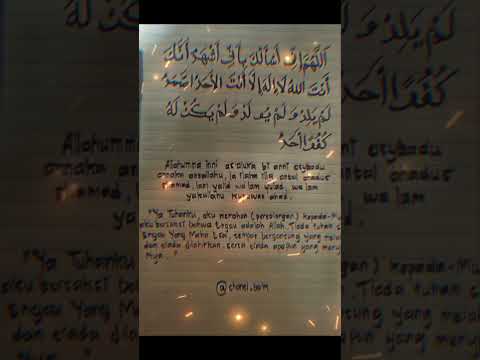 اَللّٰهُمَّ اِنِّى اَسْأَلُكَ بِأَنِّى اَشْهَدُ اَنَّكَ
اَنْتَ اللّٰهُ لَا اِلٰهَ اِلَّا اَنْتَ الْاَحَدُ الصَّمَدُ
لَمْ يَلِدْ وَلَمْ يُولَدْ وَلَمْ يَكُنْ لَهُ
كُفُوًا اَحَدٌ
Allahumma inni as'aluka bi anni asyhadu
annaka antallahu, la ilaha illa antal ahadus
shamad, lam yalid wa lam yulad, wa lam
ahad.
"Ya Tuhanku, aku memohon (pertolongan) kepada-Mu
aku bersaksi bahwa Engkau adalah Allah. Tiada tuhan
Engkau Yang Maha Esa, tempat bergantung yang
dan tidak dilahirkan serta tiada apapun yang
Mya.."
@chanel.ba'm